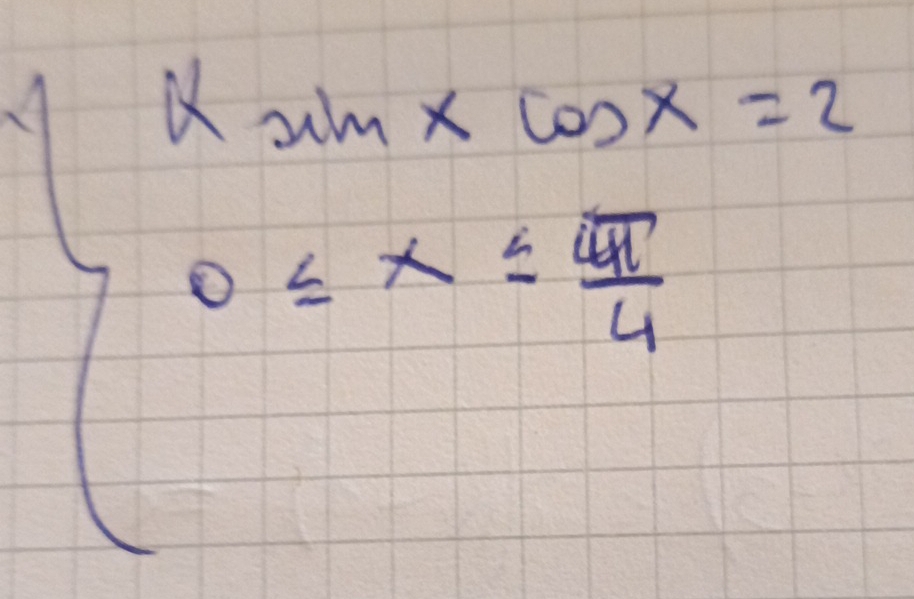 K sin x cos x = 2
0 ≤ x ≤ π/4